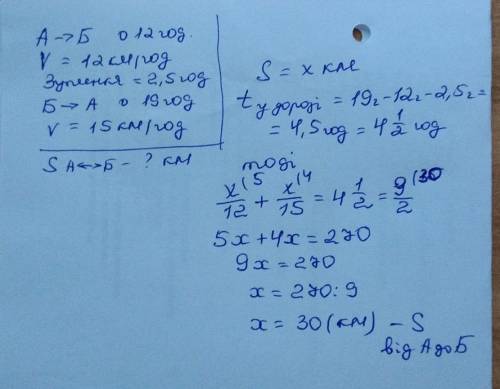 А → Б о 12 год.
V = 12 км/год
Зупинення = 2,5 год
Б → А о 19 год
V = 15 км/год
S А↔Б - ? км
S = x км
t у дорозі = 19г - 12г - 2,5г =
= 4,5 год = 4 1/2 год
тоді
x/12 (5 + x/15 (4 = 4 1/2 = 9/2 (30
5x + 4x = 270
9x = 270
x = 270 : 9
x = 30 (км) - S
від А до Б